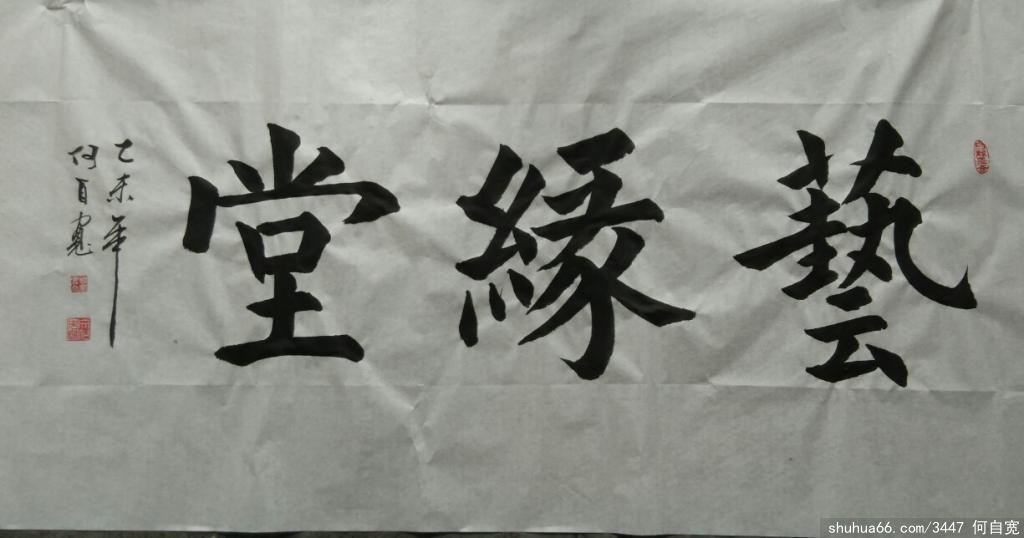 藝緣堂
乙未年
何自寬
shuhua66.com/3447 何自宽